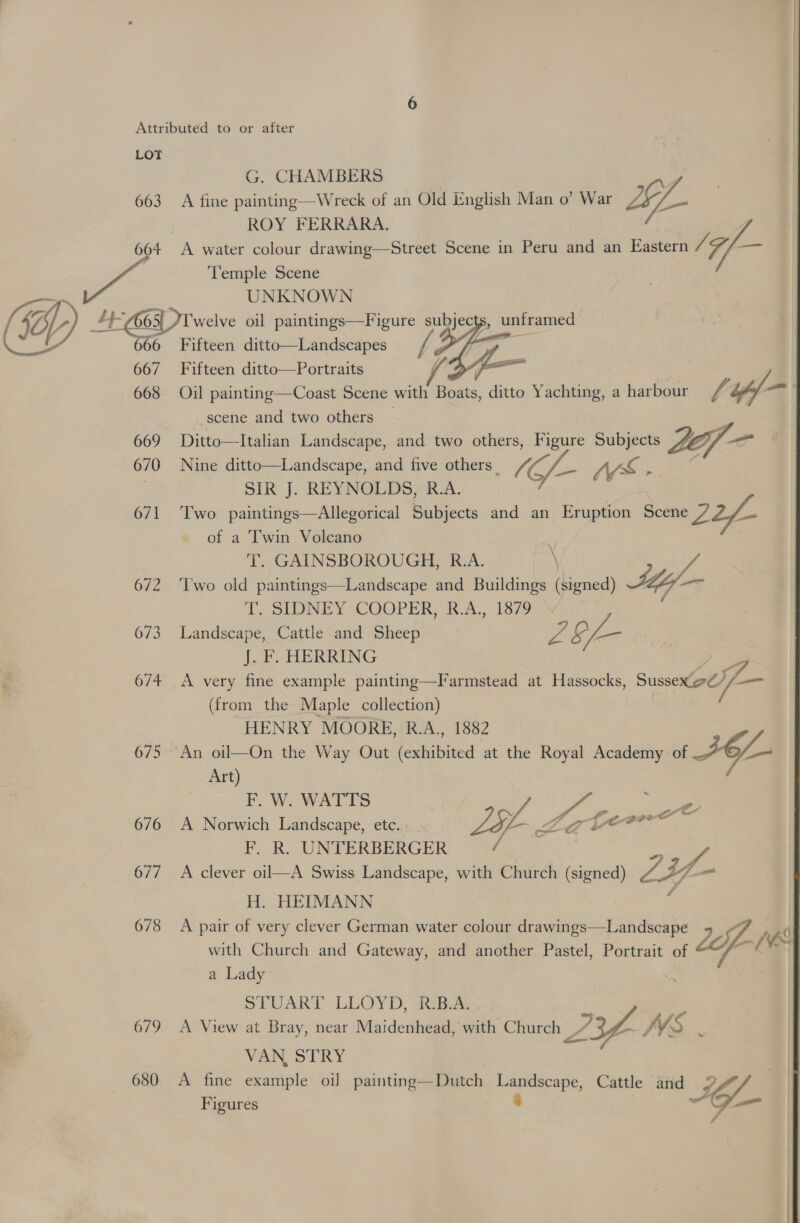 6
Attributed to or after
LOT
G. CHAMBERS
663 A fine painting—Wreck of an Old English Man o' War
ROY FERRARA.
664 A water colour drawing—Street Scene in Peru and an Eastern
Temple Scene
UNKNOWN
665 Twelve oil paintings—Figure subjects, unframed
666 Fifteen ditto—Landscapes
667 Fifteen ditto—Portraits
668 Oil painting—Coast Scene with Boats, ditto Yachting, a harbour
scene and two others
669 Ditto—Italian Landscape, and two others, Figure Subjects
670 Nine ditto—Landscape, and five others 16/- NS.
SIR J. REYNOLDS, R.A.
671 Two paintings—Allegorical Subjects and an Eruption Scene 22/-
of a Twin Volcano
T. GAINSBOROUGH, R.A.
672 Two old paintings—Landscape and Buildings (signed)
T. SIDNEY COOPER, R.A., 1879
673 Landscape, Cattle and Sheep 28/-
J. F. HERRING
674 A very fine example painting—Farmstead at Hassocks, Sussex
(from the Maple collection)
HENRY MOORE, R.A., 1882
675 An oil—On the Way Out (exhibited at the Royal Academy of 36/-
Art)
F. W. WATTS
676 A Norwich Landscape, etc.
F. R. UNTERBERGER
677 A clever oil—A Swiss Landscape, with Church (signed)
H. HEIMANN
678 A pair of very clever German water colour drawings—Landscape
with Church and Gateway, and another Pastel, Portrait of
a Lady
STUART LLOYD, R.B.A.
679 A View at Bray, near Maidenhead, with Church NS
VAN STRY
680 A fine example oil painting—Dutch Landscape, Cattle and
Figures